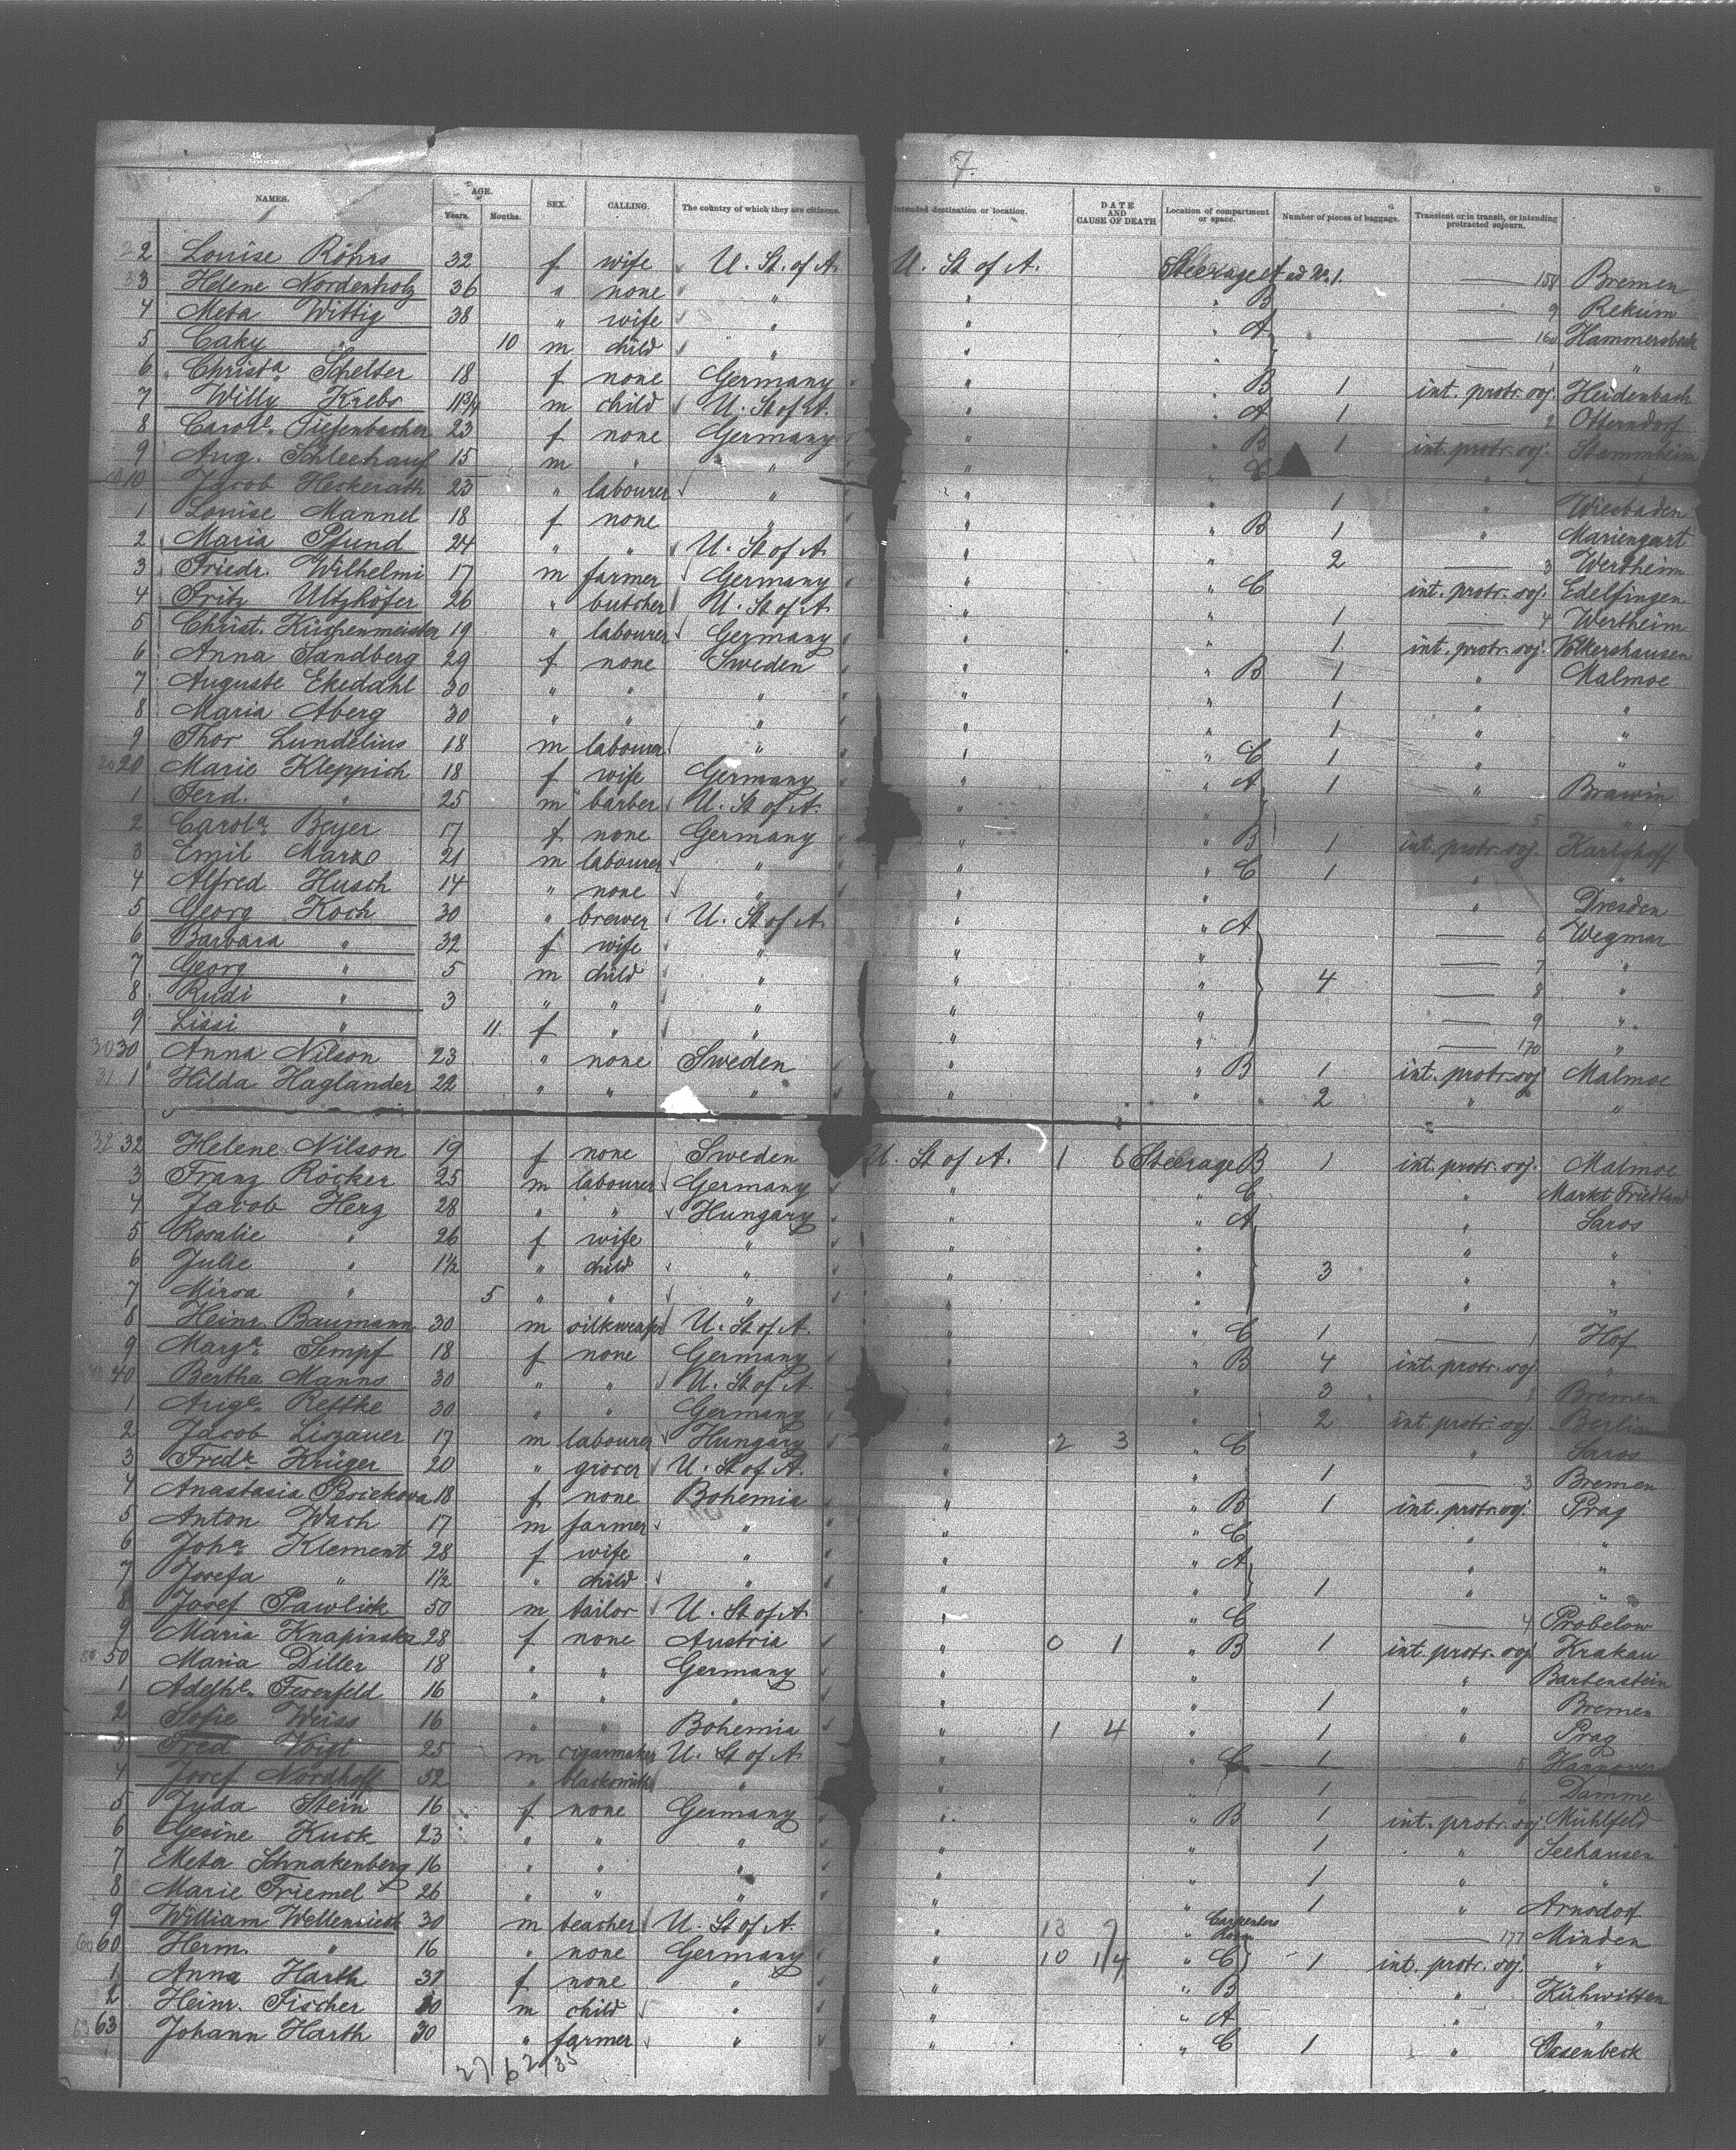 7.
NAMES. AGE. Years. Months. SEX. CALLING. The country of which they are citizens. Intended destination or location. DATE AND CAUSE OF DEATH Location of compartment or space. Number of pieces of baggage. Transient or in transit, or intending protracted sojourn.
2 Louise Röhrs 32 f wife U. St. of A. U. St of A. Steerage 158 Bremen
3 Helene Nordenholz 36 " none " " " B 9 Rekum
4 Meta Wittig 38 " wife " " " A 160 Hammersbeck
5 Caky " 10 m child " " " 1 "
6 Christa Schelter 18 f none Germany " " B 1 int. protr. soj. Heidenbach
7 Willy Krebs 11 3/4 m child U. St of A. " " A 1 2 Otterndorf
8 Carole. Tiefenbacher 23 f none Germany " " B 1 int. protr. soj. Stammheim
9 Aug. Schleehauf 15 m " " " " C " "
10 Jacob Heckerath 23 " labourer " " " 1 " Wiesbaden
1 Louise Mannel 18 f none " " " B 1 " Mariengart
2 Maria Pfund 24 " " U. St of A. " " 2 3 Wertheim
3 Friedr. Wilhelmi 17 m farmer Germany " " C int. protr. soj. Edelfingen
4 Fritz Utzhöfer 26 " butcher U. St of A. " " 1 4 Wertheim
5 Christ. Küchenmeister 19 " labourer Germany " " 1 int. protr. soj. Völkershausen
6 Anna Sandberg 29 f none Sweden " " B 1 " Malmoe
7 Auguste Ekedahl 30 " " " " " 1 " "
8 Maria Aberg 30 " " " " " 1 " "
9 Thor Lundelius 18 m labourer " " " C 1 " "
20 Marie Kleppich 18 f wife Germany " " A 1 " Brawin
1 Ferd. " 25 m barber U. St of A. " " 5 "
2 Carola Beyer 17 f none Germany " " B 1 int. protr. soj. Karlshoff
3 Emil Marx 21 m labourer " " " C 1 " "
4 Alfred Husch 14 " none " " " " Dresden
5 Georg Koch 30 " brewer U. St of A. " " A 6 Wegmar
6 Barbara " 32 f wife " " " 7 "
7 Georg " 5 m child " " " 4 8 "
8 Rudi " 3 " " " " " 9 "
9 Lissi " 11 f " " " " 170 "
30 Anna Nilson 23 " none Sweden " " B 1 int. protr. soj Malmoe
1 Hilda Haglander 22 " " " " " 2 " "
32 Helene Nilson 19 f none Sweden U. St of A. 1 6 Steerage B 1 int. protr. soj. Malmoe
3 Franz Röcker 25 m labourer Germany " " C " Markt Friedland
4 Jacob Herz 28 " " Hungary " " A " Saros
5 Rosalie " 26 f wife " " " " "
6 Julie " 1 1/2 " child " " " 3 " "
7 Mirsa " 5 " " " " " " "
8 Heinr. Baumann 30 m silkweafer U. St of A. " " C 1 1 Hof
9 Marga. Sempf 18 f none Germany " " B 4 int. protr. soj. "
40 Bertha Manns 30 " " U. St of A. " " 3 Bremen
1 Auge. Reftke 30 " " Germany " " 2 int. protr. soj. Berlin
2 Jacob Liszauer 17 m labourer Hungary " 2 3 " C " Saros
3 Fredk Krüger 20 " grocer U. St of A. " " 1 3 Bremen
4 Anastasia 18 f none Bohemia " " B 1 int. protr. soj. Prag
5 Anton Wach 17 m farmer " " " C " "
6 Joha Klement 28 f wife " " " A " "
7 Josefa " 1 1/2 " child " " " 1 " "
8 Josef Pawlick 50 m tailor U. St of A " " C 4 Probelow
9 Maria Knapinska 28 f none Austria " 0 1 " B 1 int. protr. soj. Krakau
50 Maria Diller 18 " " Germany " " " Bartenstein
1 Adelhe. 16 " " " " " 1 " Bremen
2 Sofie Weiss 16 " " Bohemia " 1 4 " 1 " Prag
3 Fred Voigt 25 m cigarmaker U. St of A " " C 1 5 Hannover
4 Josef Nordhoff 52 " blacksmith " " " 1 6 Damme
5 Juda Stein 16 f none Germany " " B 1 int. protr. soj. Mühlfeld
6 Gesine Kuck 23 " " " " " 1 " Seehausen
7 Meta Schnakenberg 16 " " " " " 1 " "
8 Marie Friemel 26 " " " " " 1 " Arnsdorf
9 William Wellenrieck 30 m teacher U. St of A. " 13 " Carpenters Room 177 Minden
60 Herm. " 16 " none Germany " 10 1/4 " C 1 int. protr. soj. "
1 Anna Harth 31 f none " " " B " Kühwitten
2 Heinr. Fischer 10 m child " " " A " "
63 Johann Harth 30 " farmer " " " C 1 " Ossenbeck
27 6 2 35